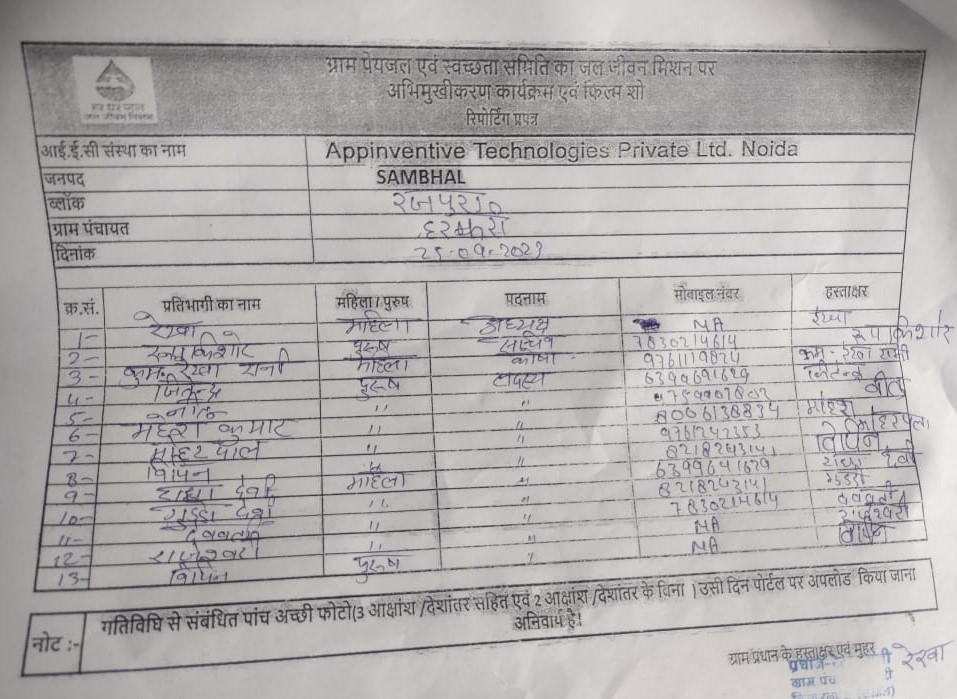 ग्राम पेयजल एवं स्वच्छता समिति का जल जीवन मिशन पर
अभिमुखीकरण कार्यक्रम एवं फिल्म शो
रिपोर्टिंग प्रपत्र
हर घर जल
जल जीवन मिशन
आई.ई.सी संस्था का नाम Appinventive Technologies Private Ltd. Noida
जनपद SAMBHAL
ब्लॉक रजपुरा
ग्राम पंचायत
दिनांक 25-09-2023
क्र.सं. प्रतिभागी का नाम महिला/पुरुष पदनाम मोबाइल नंबर हस्ताक्षर
1- रेखा महिला अध्यक्ष NA रेखा
2- रूप किशोर पुरुष सचिव 7830214614 रूप किशोर
3- कुम. रेखा रानी महिला कोषा 9761119874 कुम. रेखा रानी
4- जितेन्द्र पुरुष सदस्य जितेन्द्र
5- " "
6- महेश कुमार " " 9761242353 महेश
7- " " 8218243141
8- विपिन " " 6399641629 विपिन
9- राधा देवी महिला " 8218243141 राधा देवी
10- गुड्डी देवी " " 7830214614 गुड्डी
11- " " NA
12- राजेश्वरी " " NA राजेश्वरी
13- विपिन पुरुष " विपिन
नोट :- गतिविधि से संबंधित पांच अच्छी फोटो(3 आक्षांश /देशांतर सहित एवं 2 आक्षांश /देशांतर के विना ) उसी दिन पोर्टल पर अपलोड किया जाना
अनिवार्य है।
ग्राम प्रधान के हस्ताक्षर एवं मुहर
रेखा